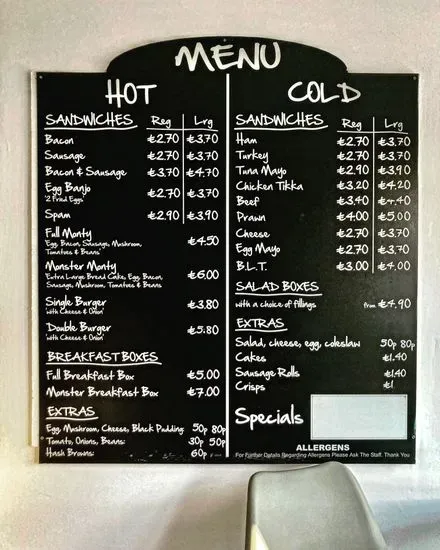 MENU
HOT
SANDWICHES Reg Lrg
Bacon £2.70 £3.70
Sausage £2.70 £3.70
Bacon & Sausage £3.70 £4.70
Egg Banjo
'2 Fried Eggs' £2.70 £3.70
Spam £2.90 £3.90
Full Monty
Egg, Bacon, Sausage, Mushroom, £4.50
Tomatoes & Beans
Monster Monty
Extra Large Bread Cake, Egg, Bacon, £6.00
Sausage, Mushroom, Tomatoes & Beans
Single Burger £3.80
'with Cheese & Onion'
Double Burger £5.80
'with Cheese & Onion'
BREAKFAST BOXES
Full Breakfast Box £5.00
Monster Breakfast Box £7.00
EXTRAS
Egg, Mushroom, Cheese, Black Pudding: 50p 80p
Tomato, Onions, Beans: 30p 50p
Hash Browns: 60p
COLD
SANDWICHES Reg Lrg
Ham £2.70 £3.70
Turkey £2.70 £3.70
Tuna Mayo £2.90 £3.90
Chicken Tikka £3.20 £4.20
Beef £3.40 £4.40
Prawn £4.00 £5.00
Cheese £2.70 £3.70
Egg Mayo £2.70 £3.70
B.L.T. £3.00 £4.00
SALAD BOXES
with a choice of fillings from £4.90
EXTRAS
Salad, cheese, egg, coleslaw 50p 80p
Cakes £1.40
Sausage Rolls £1.40
Crisps £1
Specials
ALLERGENS
For Further Details Regarding Allergens Please Ask The Staff. Thank You